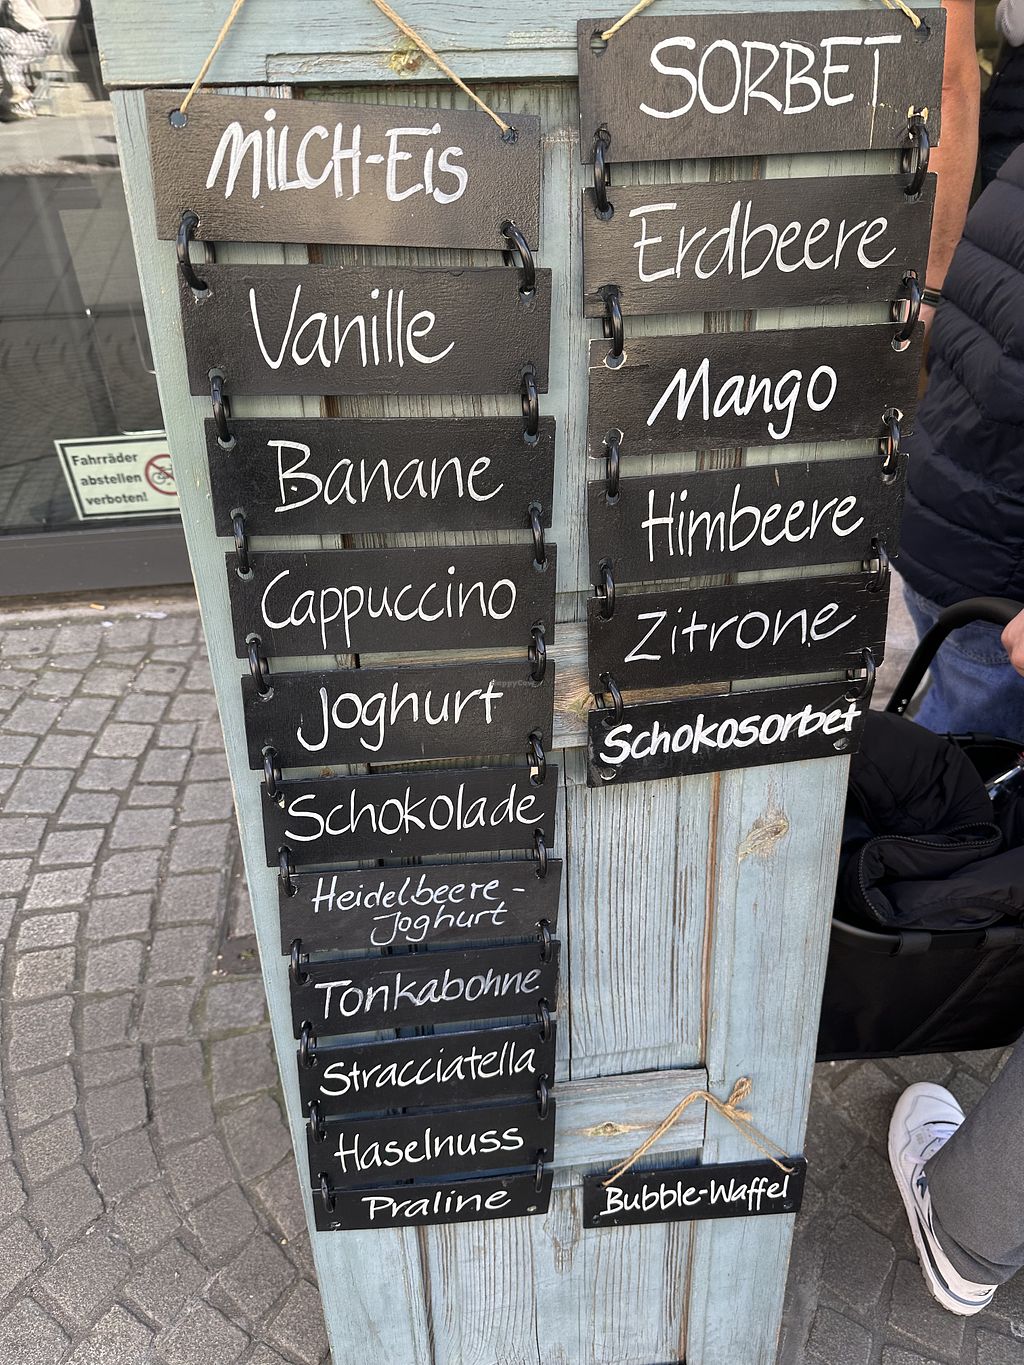 MiLCH-Eis
Vanille
Banane
Cappuccino
Joghurt
Schokolade
Heidelbeere-
Joghurt
Tonkabohne
Stracciatella
Haselnuss
Praline
SORBET
Erdbeere
Mango
Himbeere
Zitrone
Schokosorbet
Bubble-Waffel
Fahrräder
abstellen
verboten!